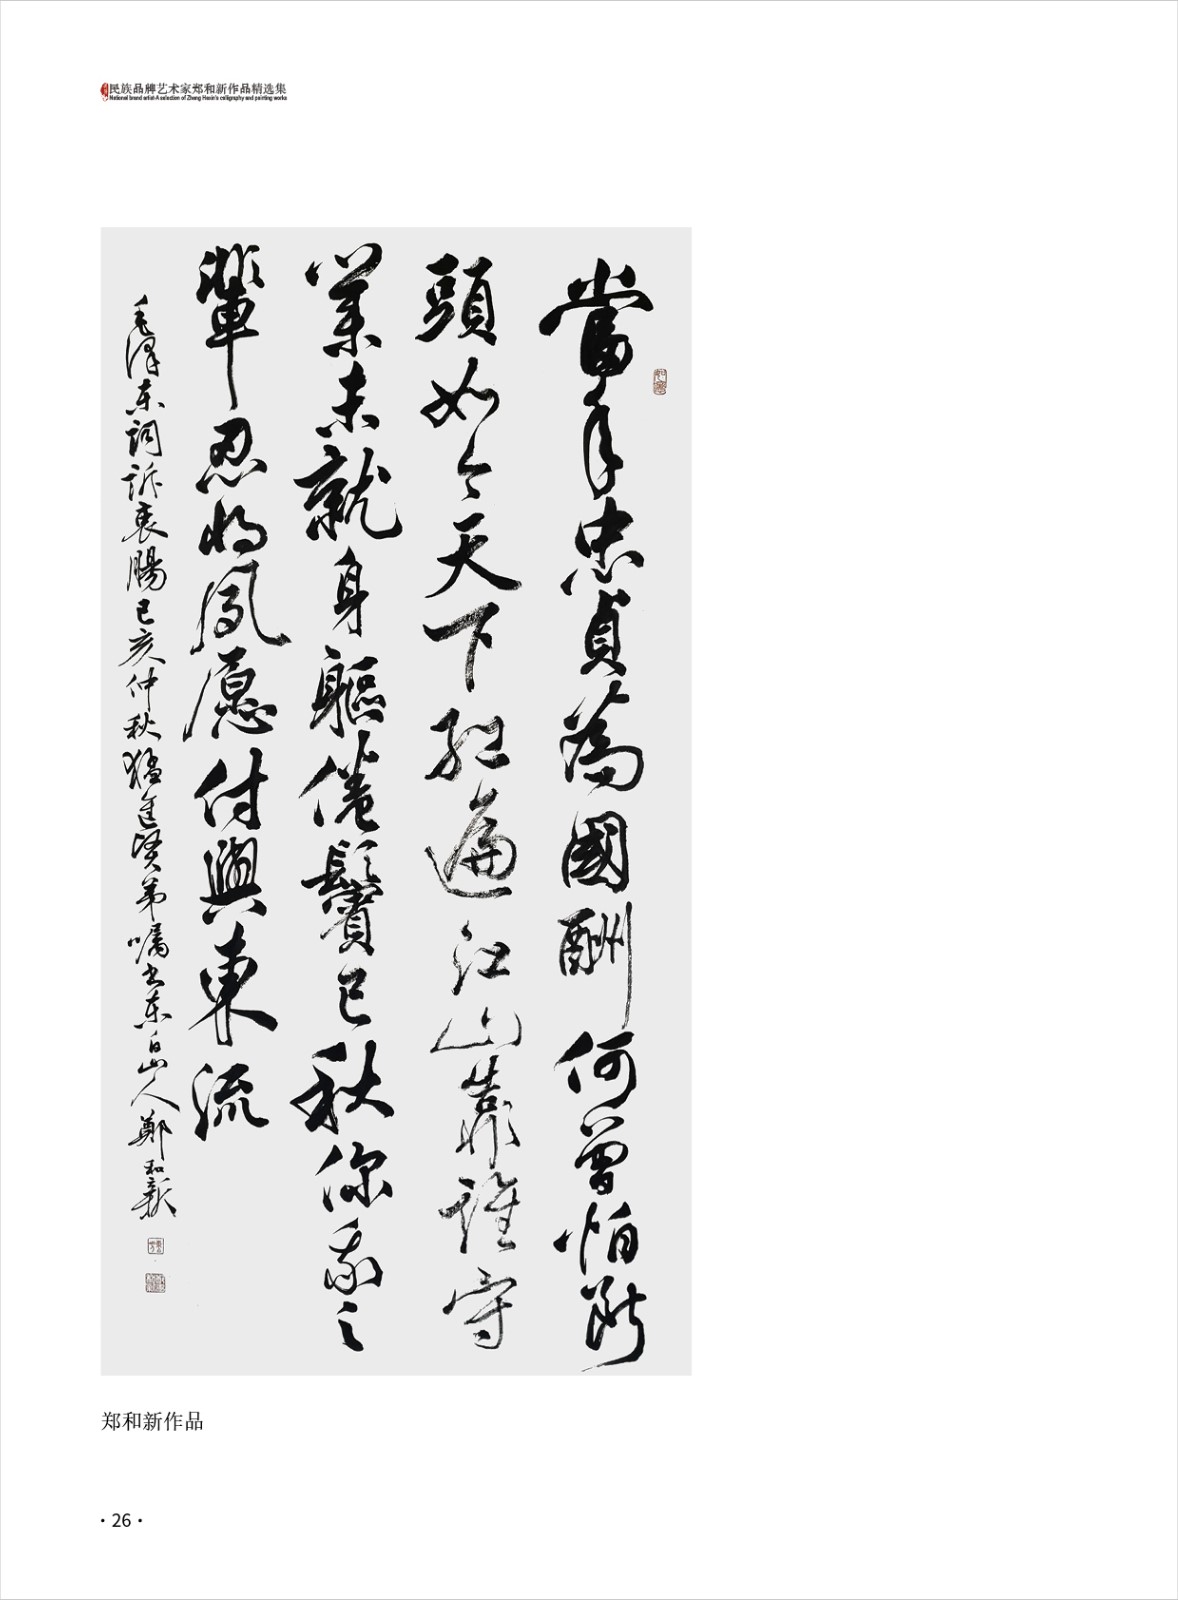 民族品牌艺术家郑和新作品精选集
National brand artist-A selection of Zheng Hexin's calligraphy and painting works
當年忠貞為國酬何曾怕斷
頭如今天下红遍江山靠誰守
業未就身軀倦鬢已秋你我之
輩忍将夙愿付與東流
毛澤东詞訴衷腸己亥仲秋猛進贤弟嘱书东白山人鄭和新
郑和新作品
·26·